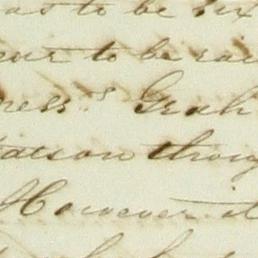 as to be six
to be rai
ness's Grah
atson throug
However it